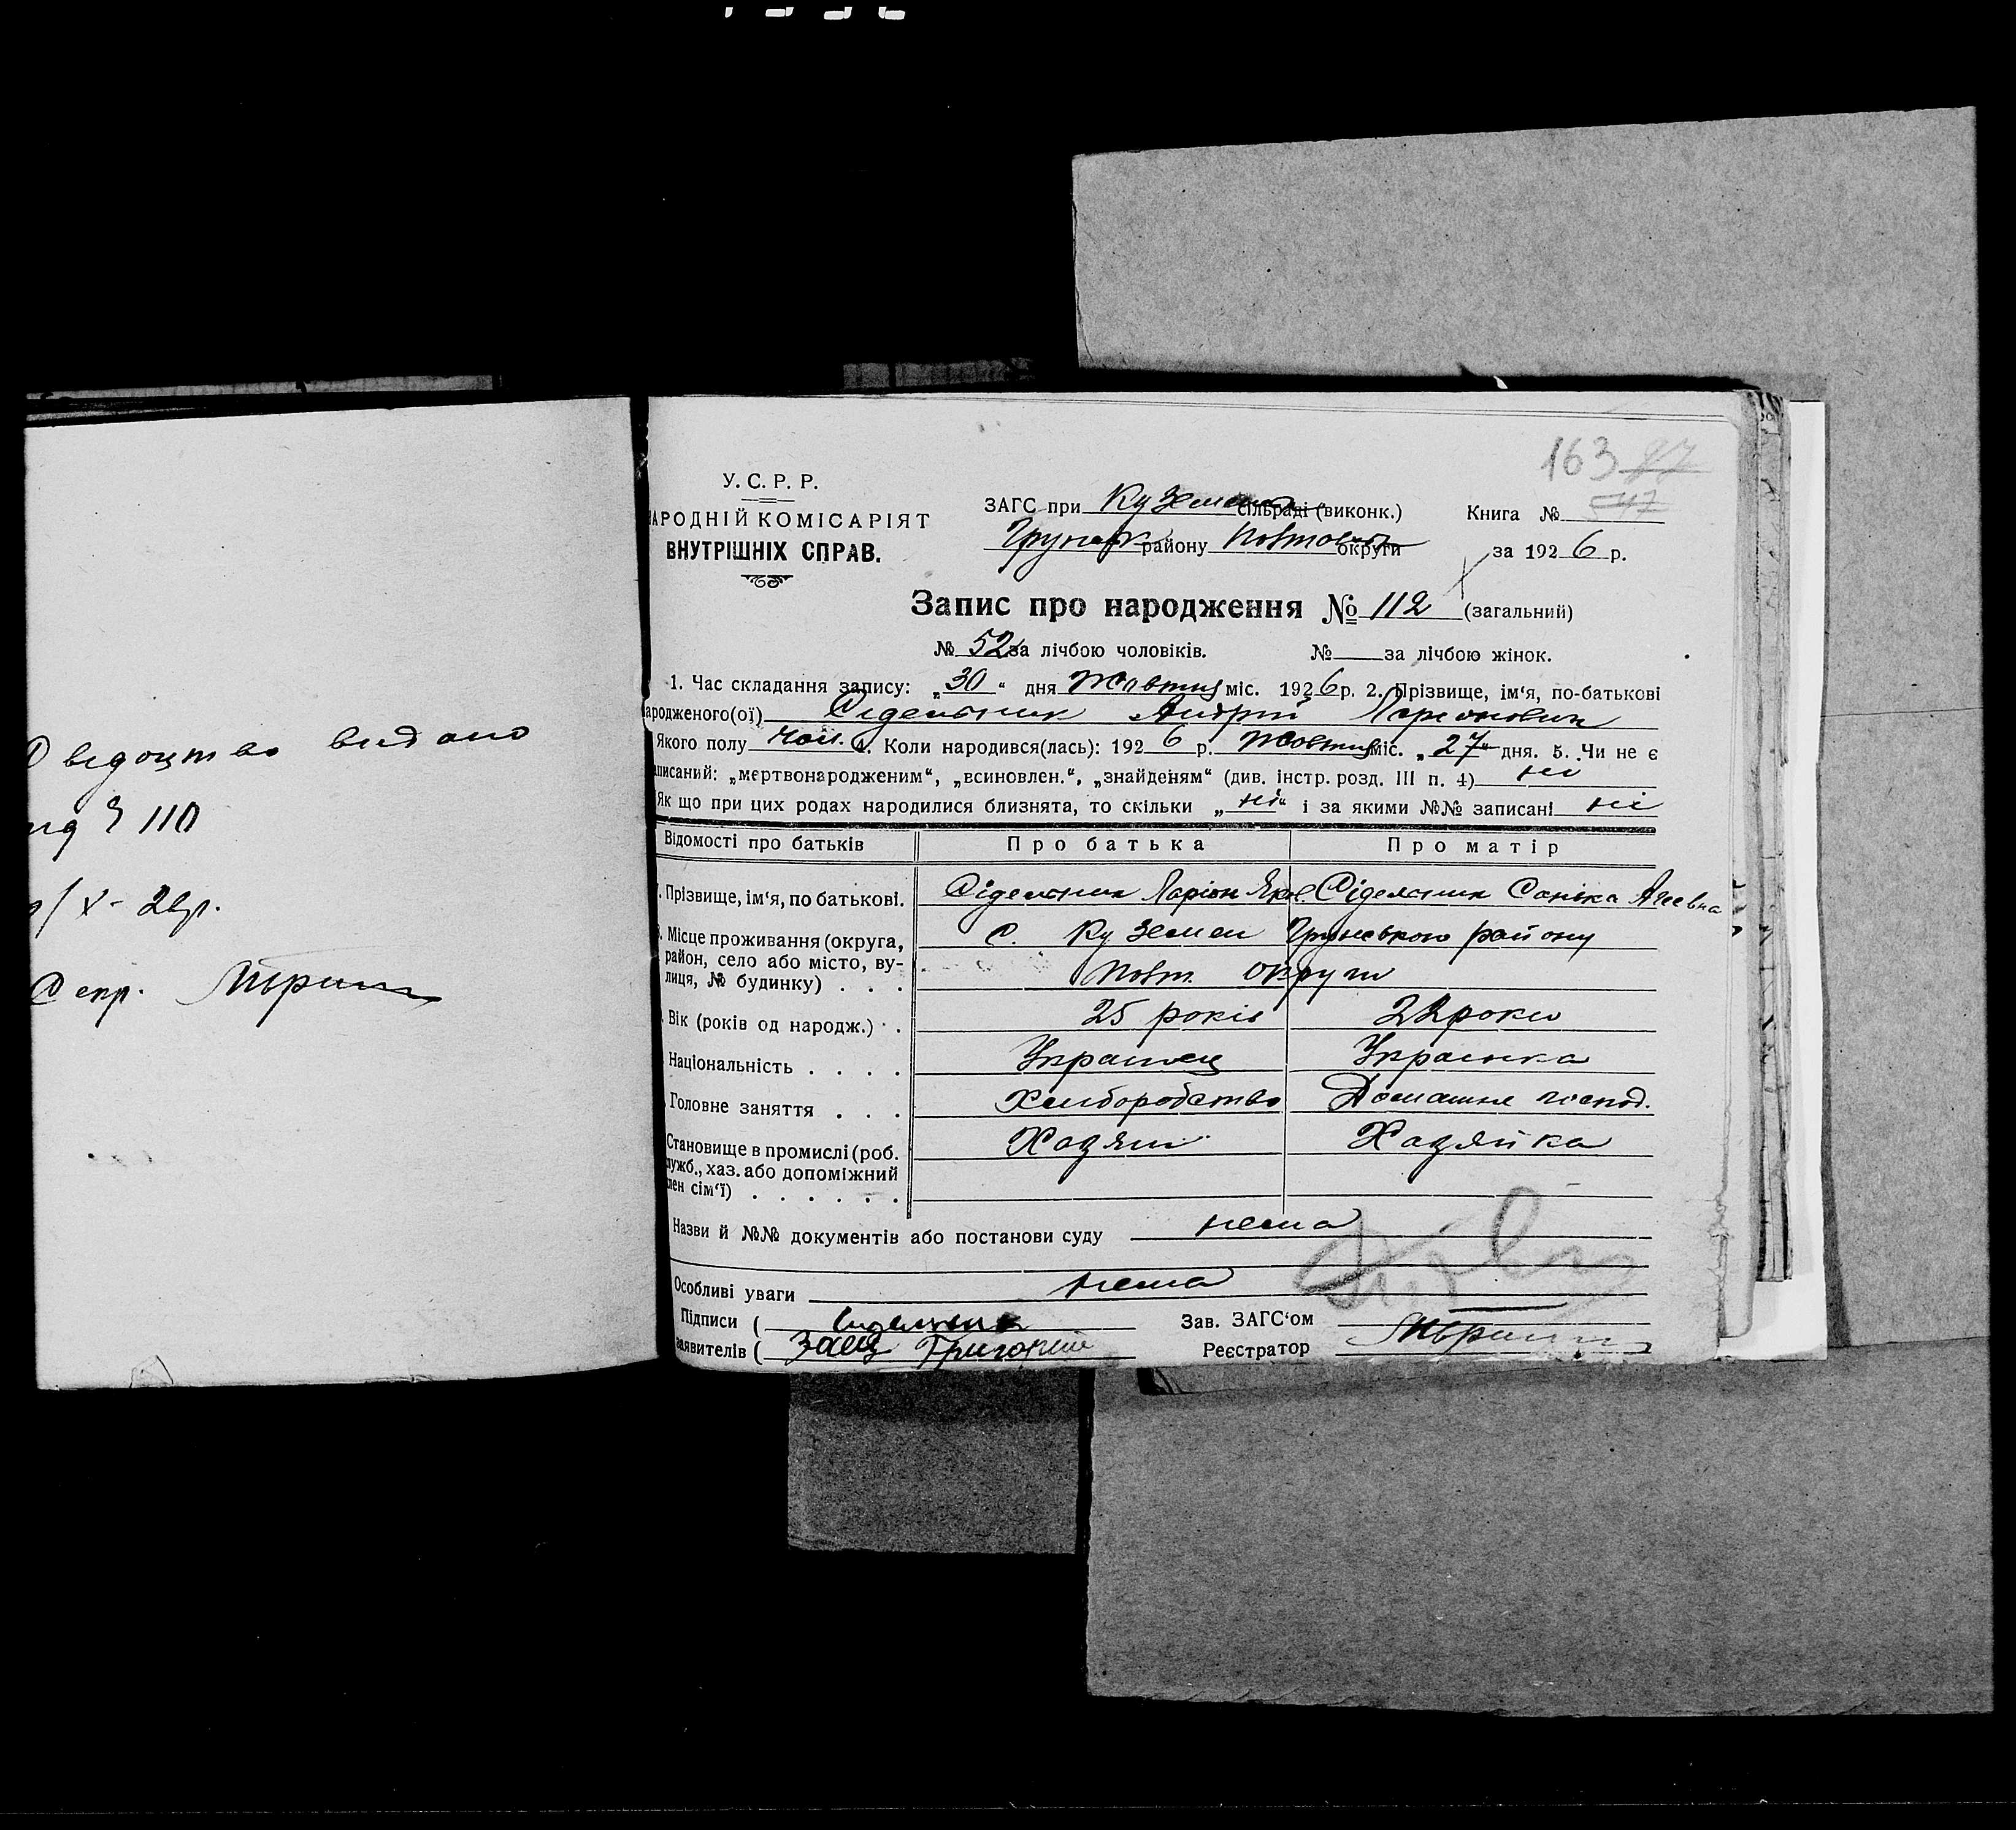 видано
110
Секр.
163 97
У. С. Р. Р.
АРОДНІЙ КОМІСАРІЯТ
ВНУТРІШНІХ СПРАВ.
ЗАГС при Куземен сільраді (виконк.)
Грунськ району Полтавськ округи
Книга № 547
за 1926 р.
Запис про народження № 112 (загальний)
№ 52 за лічбою чоловіків. № за лічбою жінок.
1. Час складання запису: „30“ дня Жовтня міс. 1926 р. 2. Прізвище, ім‘я, по-батькові
ародженого(ої) Сідельник Андрій Ларіонович
Якого полу чол. 4. Коли народився(лась): 1926 р. Жовтня міс. „27“ дня. 5. Чи не є
аписаний: „мертвонародженим“, „всиновлен.“, „знайденям“ (див. інстр. розд. III п. 4) ні
Як що при цих родах народилися близнята, то скільки „ні“ і за якими №№ записані ні
Відомості про батьків Про батька Про матір
Прізвище, ім‘я, по батькові. Сідельник Ларіон Сідельник
Місце проживання (округа, район, село або місто, вулиця, № будинку) . . . с. Куземен Грунського району
Полт. округи
Вік (років од народж.) . . 25 років 22 роки
Національність . . . . Украінец Украінка
Головне заняття . . . Хлиборобство Домашнє господ.
Становище в промислі (роб. Хазяін Хазяйка
ужб., хаз. або допоміжний
лен сім‘ї) . . . . . .
Назви й №№ документів або постанови суду нема
Особливі уваги нема
Підписи ( Сідельник Зав. ЗАГС‘ом
заявителів ( Заєц Григорій Реєстратор